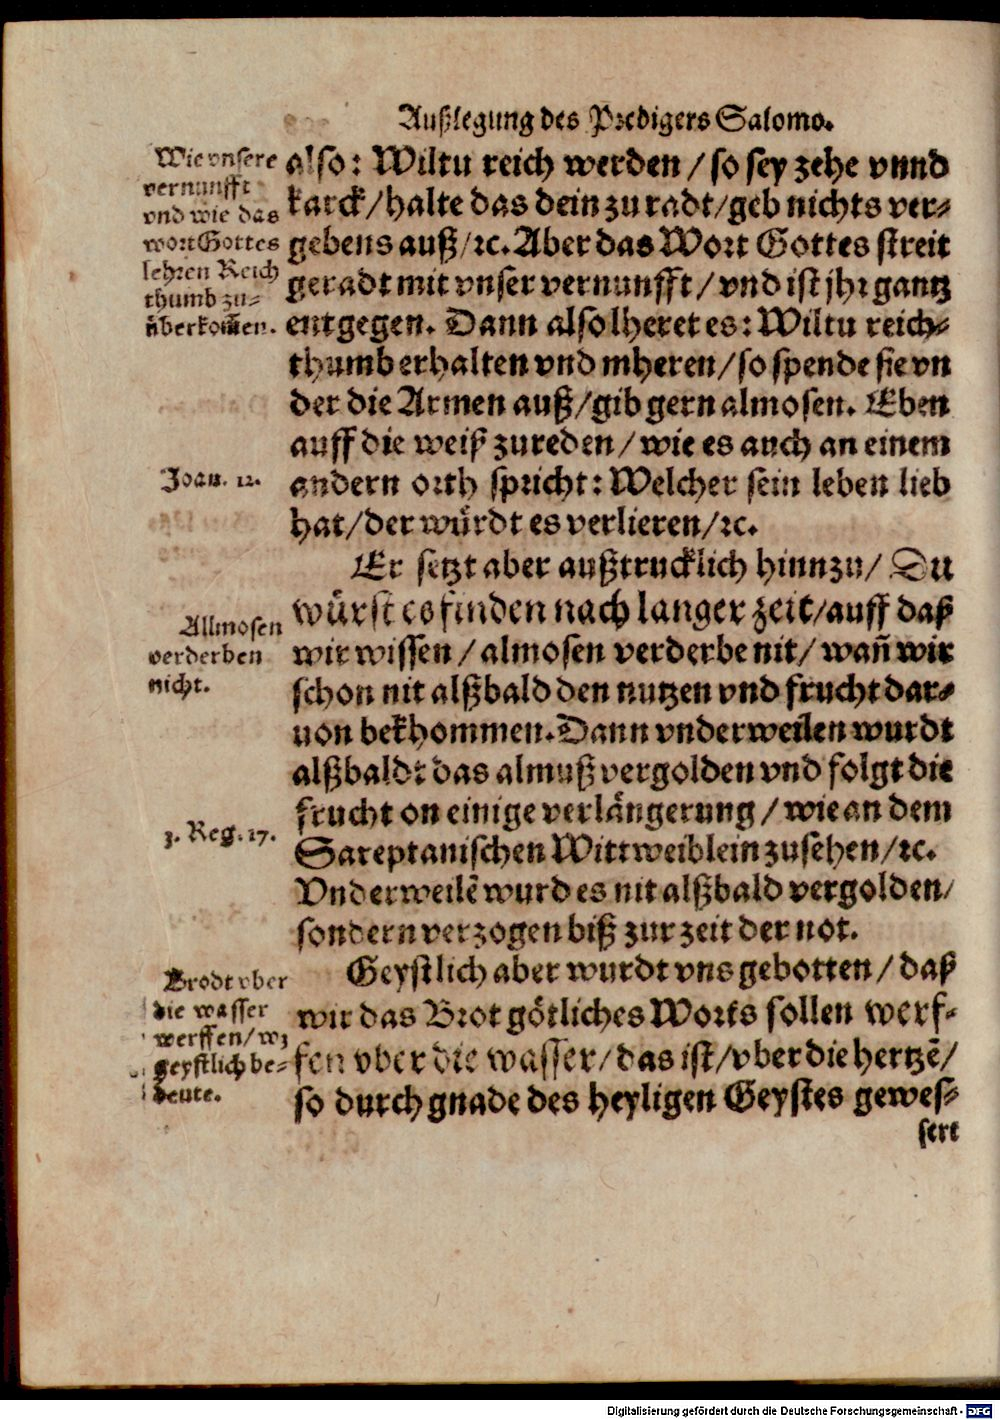 Außlegung des Predigers Salomo.
Wie vnsere
vernunfft
vnd wie das
wort Gottes
lehren Reich
thumb zu-
überkom̃en.
also: Wiltu reich werden / so sey zehe vnnd
karck / halte das dein zu radt / geb nichts ver-
gebens auß / ꝛc. Aber das Wort Gottes streit
geradt mit vnser vernunfft / vnd ist jhr gantz
entgegen. Dann also lheret es: Wiltu reich-
thumb erhalten vnd mheren / so spende sie vn
der die Armen auß / gib gern almosen. Eben
auff die weiß zureden / wie es auch an einem
Joan. 12.
andern orth spricht: Welcher sein leben lieb
hat / der würdt es verlieren / ꝛc.
Er setzt aber außtrucklich hinnzu / Du
würst es finden nach langer zeit / auff daß
Allmosen
verderben
nicht.
wir wissen / almosen verderbe nit / wañ wir
schon nit alßbald den nutzen vnd frucht dar-
uon bekhommen. Dann vnderweilen wurdt
alßbaldt das almuß vergolden vnd folgt die
frucht on einige verlängerung / wie an dem
3. Reg. 17.
Sareptanischen Wittweiblein zusehen / ꝛc.
Vnderweilẽ wurd es nit alßbald vergolden /
sondern verzogen biß zur zeit der not.
Brodt vber
die wasser
werffen / wz
geystlich be-
deute.
Geystlich aber wurdt vns gebotten / daß
wir das Brot götliches Worts sollen werf-
fen vber die wasser / das ist / vber die hertzẽ /
so durch gnade des heyligen Geystes gewes-
sert
Digitalisierung gefördert durch die Deutsche Forschungsgemeinschaft - DFG